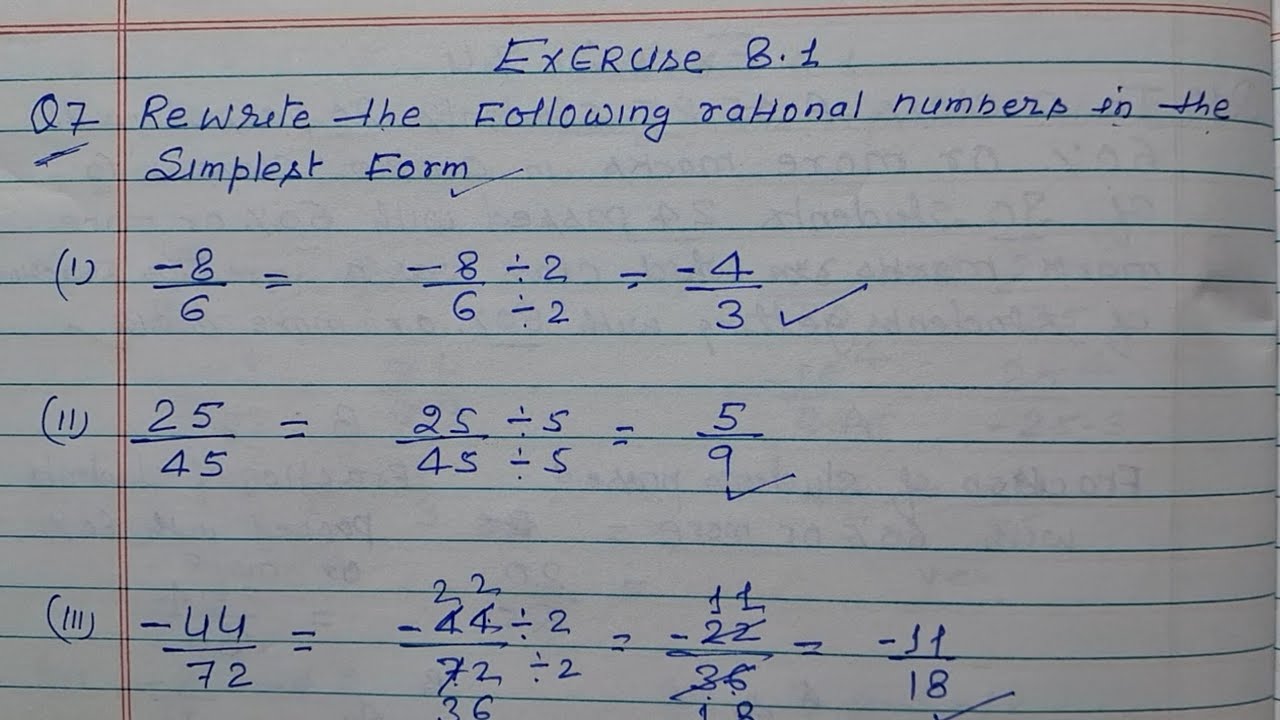 EXERCISE 8.1
Q7 Rewrite the Following rational numbers in the
Simplest Form
(I) -8/6 = -8÷2/6÷2 = -4/3
(II) 25/45 = 25÷5/45÷5 = 5/9
22 11
(III) -44/72 = -44÷2/72÷2 = -22/36 = -11/18
36 18